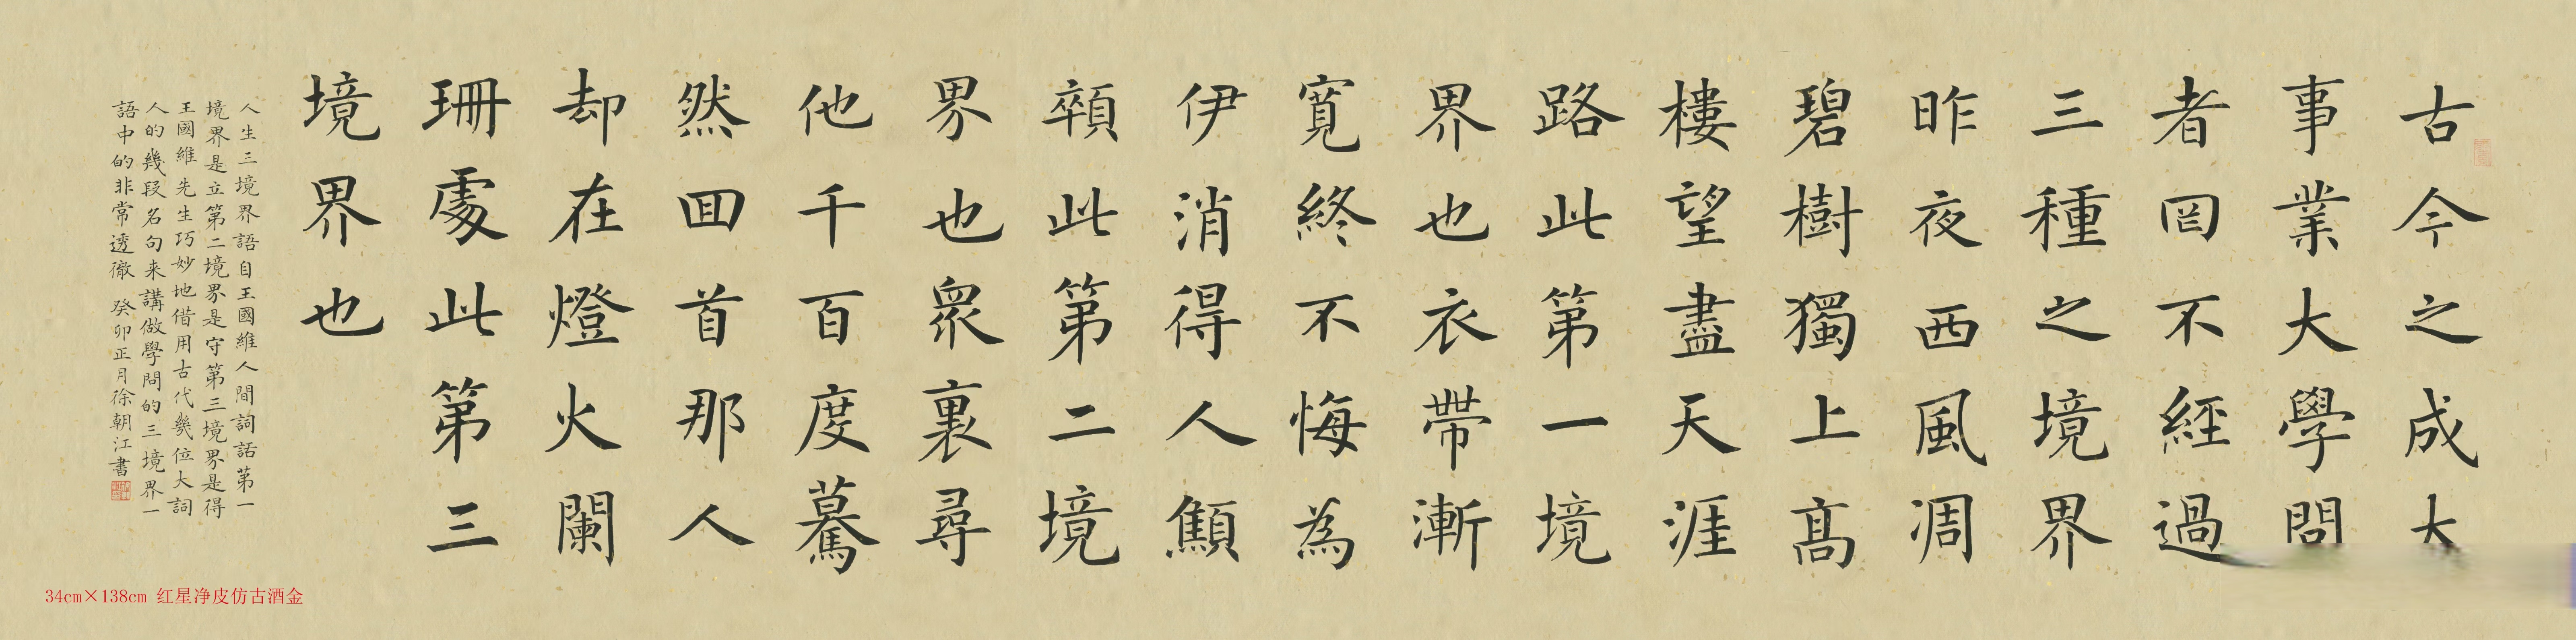 古今之成大
事業大學問
者罔不經過
三種之境界
昨夜西風凋
碧樹獨上髙
樓望盡天涯
路此第一境
界也衣帶漸
寬終不悔為
伊消得人顦
顇此第二境
界也衆裏尋
他千百度驀
然囬首那人
却在燈火闌
珊處此第三
境界也
人生三境界語自王國維人間詞話第一
境界是立第二境界是守第三境界是得
王國維先生巧妙地借用古代幾位大詞
人的幾段名句来講做學問的三境界一
語中的非常透徹 癸卯正月徐朝江書
34cm×138cm 红星净皮仿古酒金